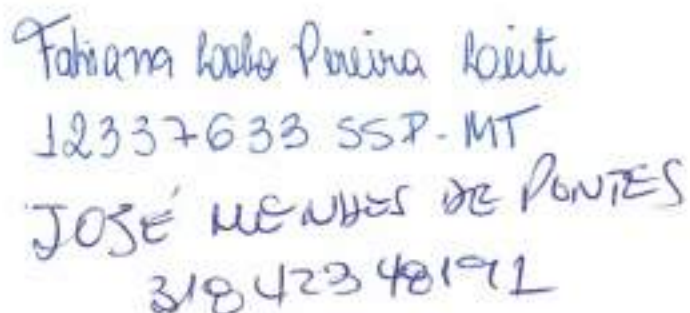 Fabiana Lobo Pereira Leite
12337633 SSP-MT
JOSÉ MENDES DE PONTES
31842348191